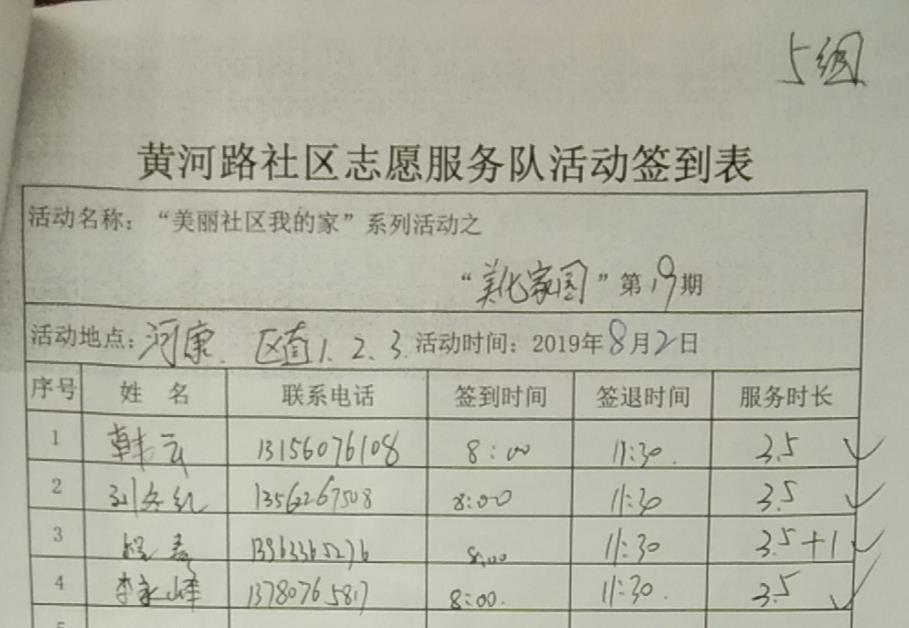 5组
黄河路社区志愿服务队活动签到表
活动名称：“美丽社区我的家”系列活动之
“美化家园”第19期
活动地点：河康、区直1、2、3 活动时间：2019年8月2日
序号 姓 名 联系电话 签到时间 签退时间 服务时长
1 韩云 13156076108 8:00 11:30. 3.5 ✓
2 8:00 11:30 3.5 ✓
3 8:00 11:30 3.5+1 ✓
4 李永峰 13780765817 8:00. 11:30. 3.5 ✓
5